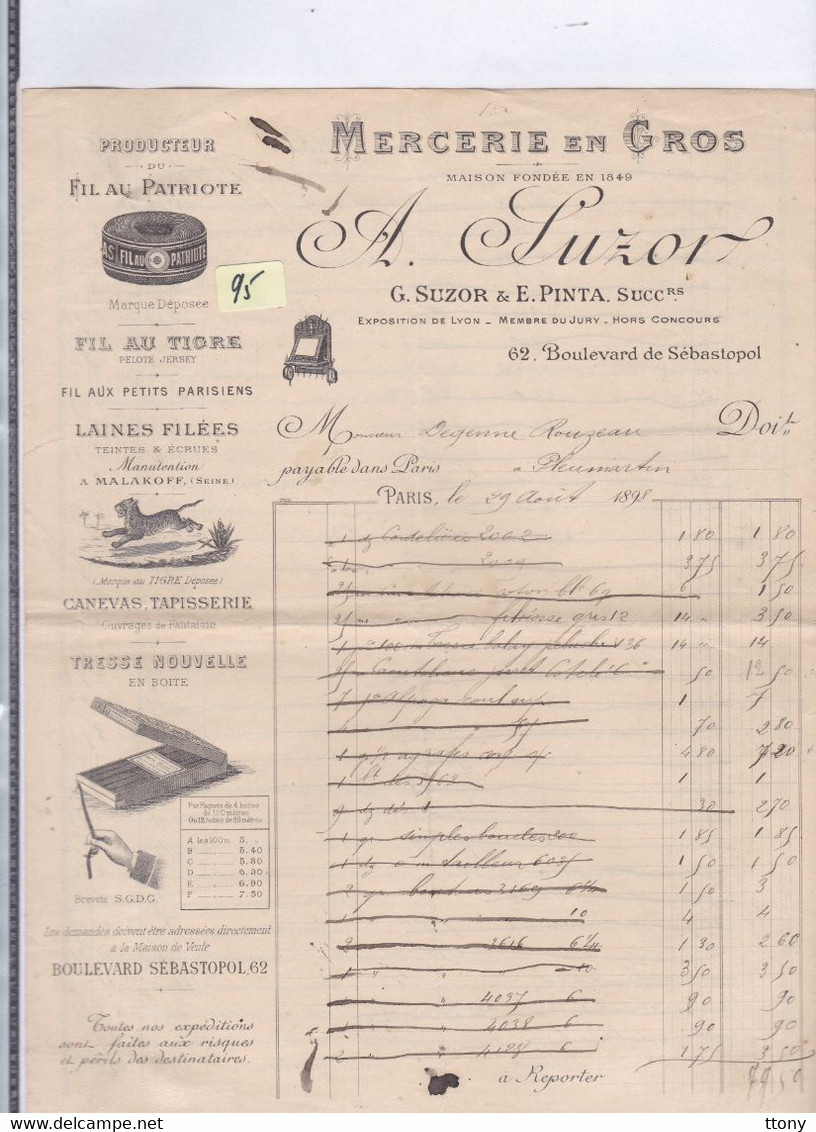 PRODUCTEUR
DU
FIL AU PATRIOTE
AS FIL AU PATRIOTE
Marque Déposée
95
FIL AU TIGRE
PELOTE JERSEY
FIL AUX PETITS PARISIENS
LAINES FILÉES
TEINTES & ÉCRUES
Manutention
A MALAKOFF, (SEINE)
(Marque au TIGRE Déposée)
CANEVAS, TAPISSERIE
Ouvrages de Fantaisie
TRESSE NOUVELLE
EN BOITE
Par Paquets de 4 bottes
de 100 mètres
Ou 12 boîtes de 25 mètres
A les 100m 5. „
B 5.40
C 5.80
D 6.30
E 6.90
F 7.50
Breveté S.G.D.G.
Les demandes doivent être adressées directement
à la Maison de Vente
BOULEVARD SÉBASTOPOL, 62
Toutes nos expéditions
sont faites aux risques
et périls des destinataires.
MERCERIE EN GROS
MAISON FONDÉE EN 1849
A. Suzor
G. SUZOR & E. PINTA. SUCCRS
EXPOSITION DE LYON _ MEMBRE DU JURY _ HORS CONCOURS
62. Boulevard de Sébastopol
Monsieur Degenne Rouzeau Doit
payable dans Paris à Pleumartin
PARIS, le 29 Août 1898
1 dz Cordelières 2002 1 80 1 80
2029 3 75 3 75
6 1 50
gris 12 14 „ 3 50
136 14 „ 14
50 12 50
7 1 7
70 2 80
1 agrafes 4 80 7 20
1 1 1
9 dz dés 30 2 70
1 gr simples boucles 200 1 85 1 85
1 dz tailleur 6085 1 50 1 50
2 gr 3169 6/4 1 50 3
1 „ „ 10 4 4
2 3616 6/4 1 30 2 60
1 „ „ 10 3 50 3 50
1 „ „ 4037 6 90 90
1 „ „ 4038 6 90 90
2 „ „ 4128 6 1 75 3 50
à Reporter 79 50
ttony